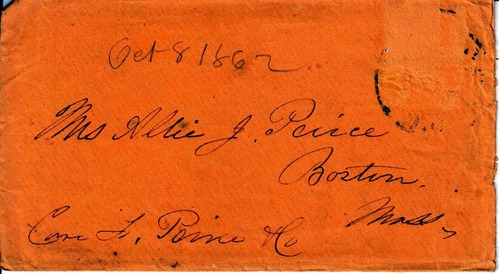 Oct 8 1862
Mrs Allie J. Peirce
Boston.
Mass,
Care L, Peirce & Co